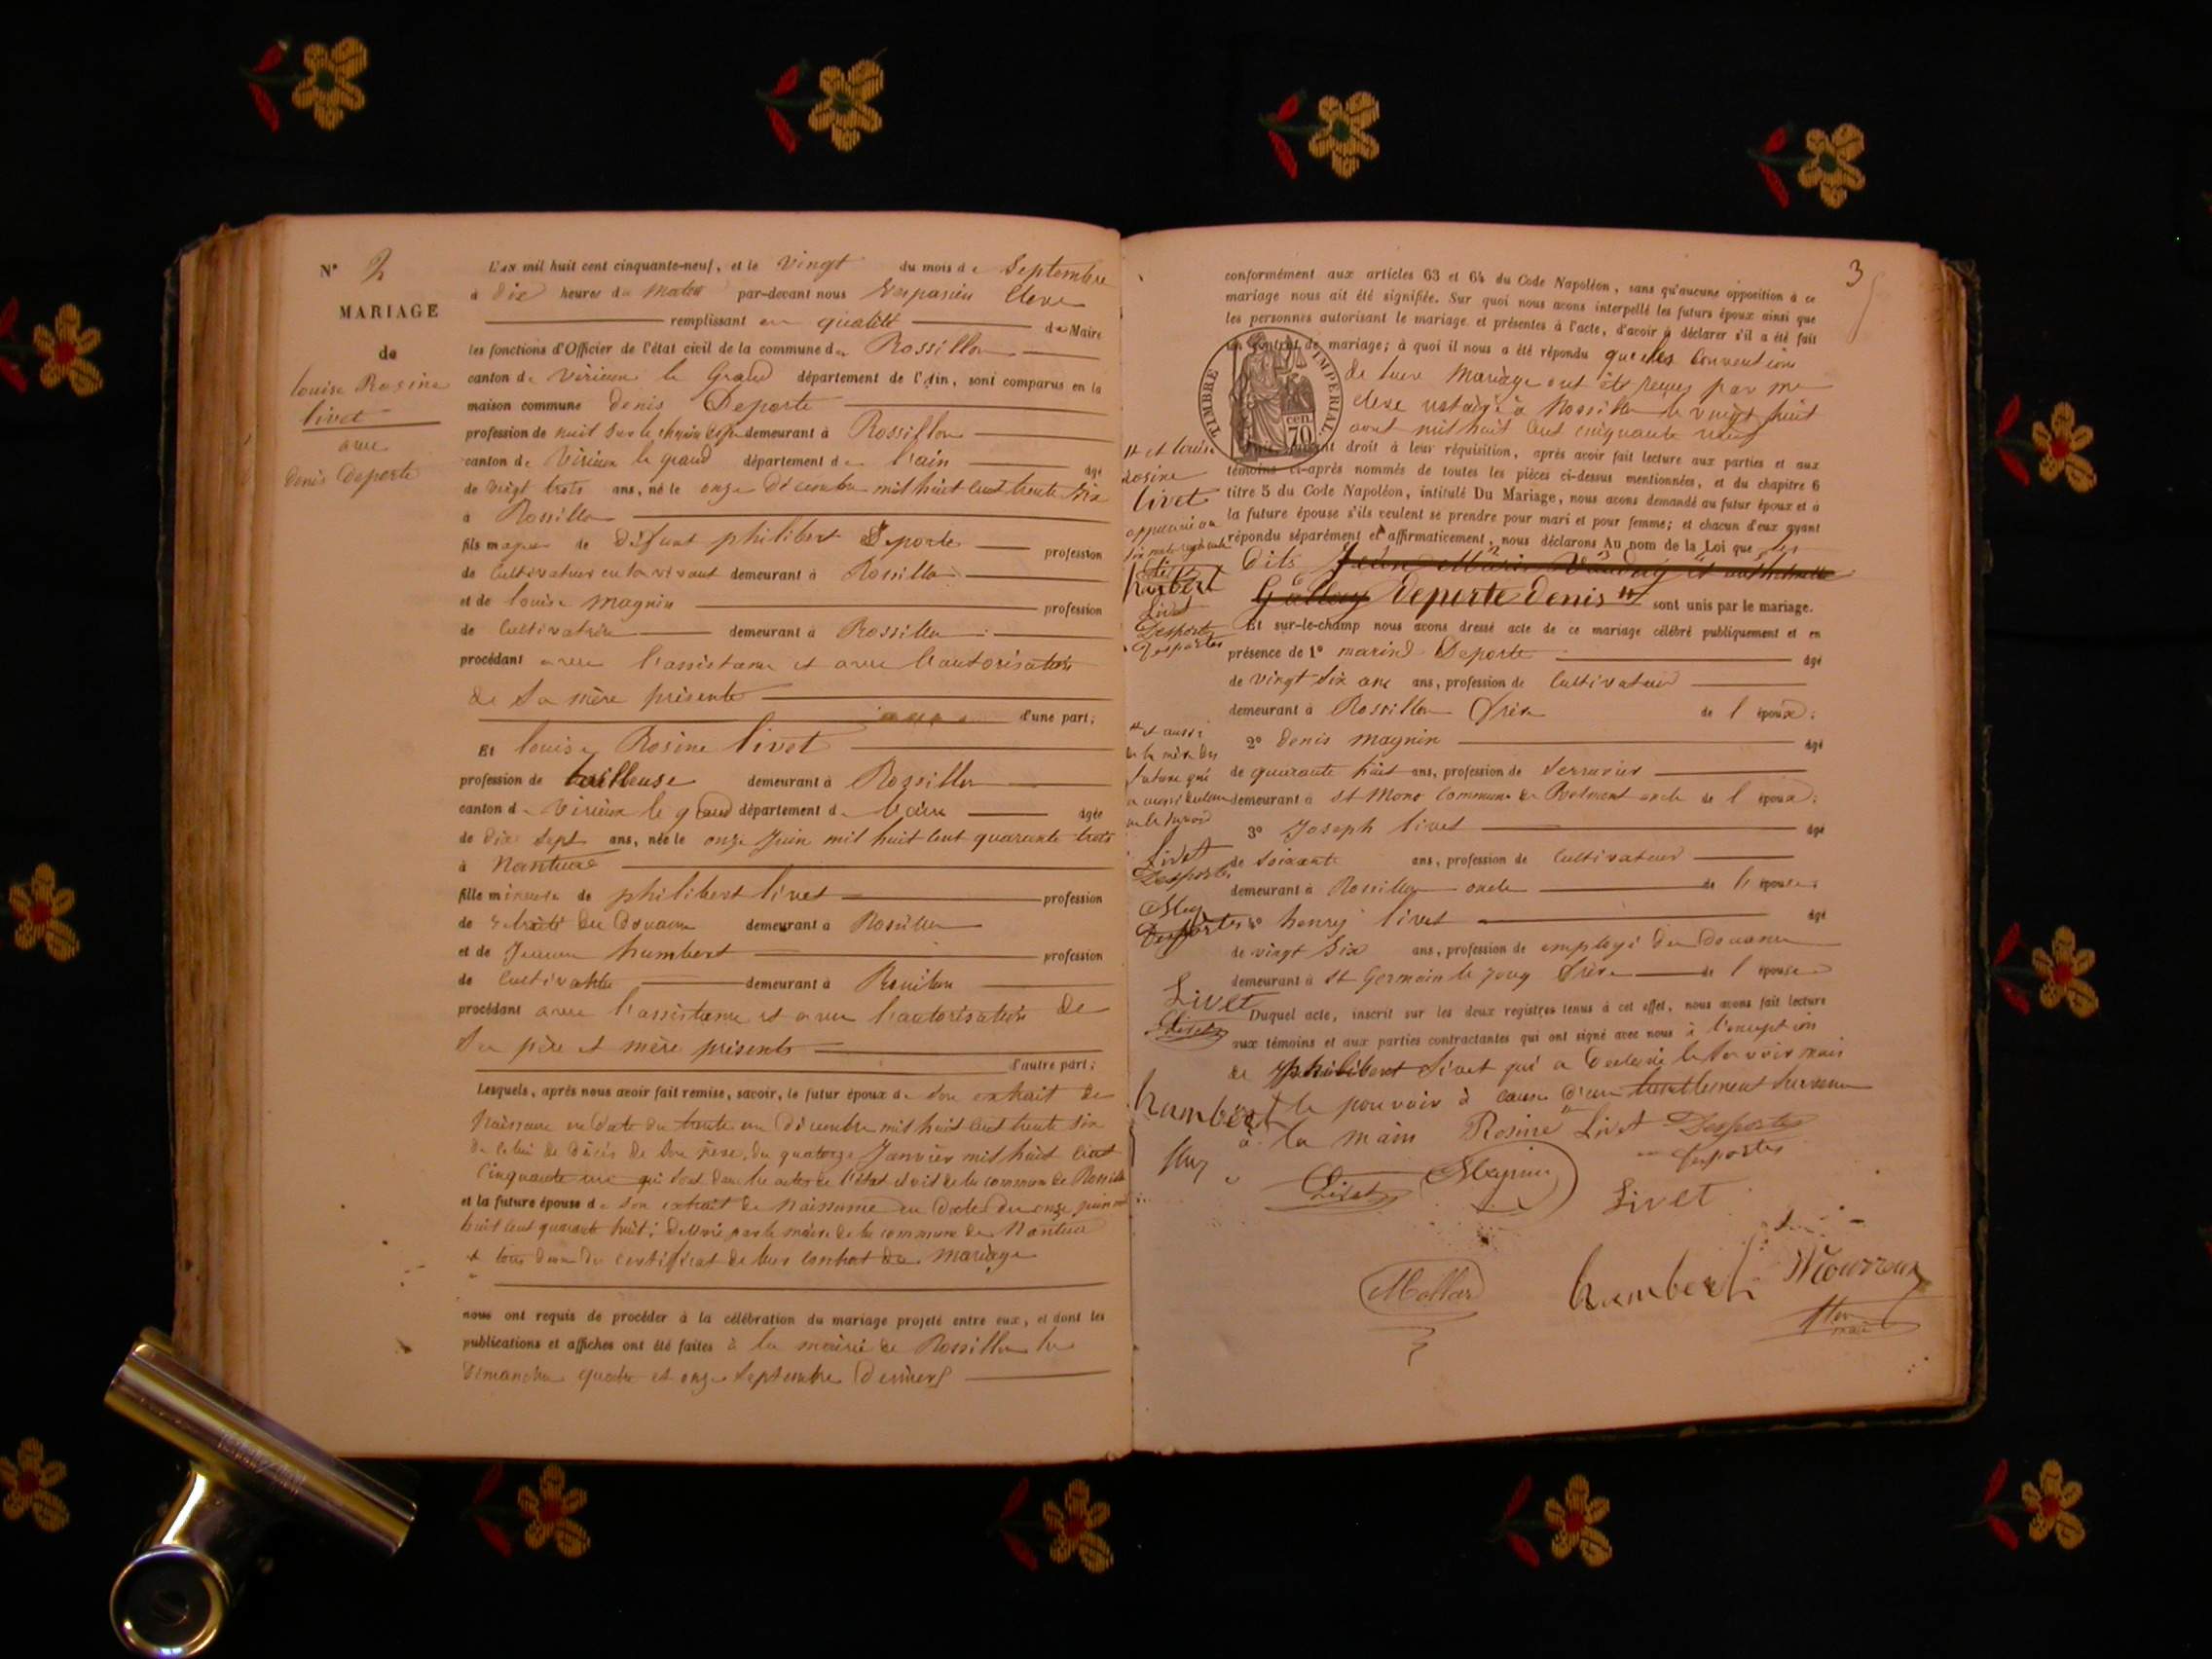 N° 2
MARIAGE
de
louise Rosine
livet
avec
denis Deporte
L'AN mil huit cent cinquante-neuf, et le vingt du mois de Septembre
à dix heures du matin par-devant nous Vespasien
remplissant en qualité de Maire
les fonctions d'Officier de l'état civil de la commune de Rossillon
canton de Virieu le Grand département de l'Ain, sont comparus en la
maison commune denis Deporte
profession de demeurant à Rossillon
canton de Virieu le grand département de l'ain âgé
de vingt trois ans, né le onze décembre mil huit cent trente six
à Rossillon
fils majeur de défunt philibert Deporte profession
de Cultivateur en son vivant demeurant à Rossillon
et de louise magnin profession
de Cultivatrice demeurant à Rossillon
procédant avec l'assistance et avec l'autorisation
de Sa mère présente
d'une part;
Et louise Rosine livet
profession de tailleuse demeurant à Rossillon
canton de Virieu le grand département de l'ain âgée
de dix sept ans, née le onze Juin mil huit cent quarante trois
à Nantua
fille mineure de philibert livet profession
de retraité des Douanes demeurant à Rossillon
et de humbert profession
de Cultivatrice demeurant à Rossillon
procédant avec l'assistance et avec l'autorisation de
Ses père et mère présents
d'autre part;
Lesquels, après nous avoir fait remise, savoir, le futur époux de Son extrait de
Naissance en date du trente un décembre mil huit cent trente six
de celui de décès de Son père, du quatorze Janvier mil huit cent
Cinquante un qui sont dans les actes de l'état civil de la commune de Rossillon
et la future épouse de Son extrait de Naissance en date du onze juin mil
huit cent quarante huit; délivré par le maire de la commune de Nantua
et tous deux du certificat de leur contrat de mariage
nous ont requis de procéder à la célébration du mariage projeté entre eux, et dont les
publications et affiches ont été faites à la mairie de Rossillon les
dimanches quatre et onze Septembre derniers
3
conformément aux articles 63 et 64 du Code Napoléon, sans qu'aucune opposition à ce
mariage nous ait été signifiée. Sur quoi nous avons interpellé les futurs époux ainsi que
les personnes autorisant le mariage et présentes à l'acte, d'avoir à déclarer s'il a été fait
un contrat de mariage; à quoi il nous a été répondu que les Conventions
de leur Mariage ont été reçues par me
notaire à Rossillon le vingt huit
aout mil huit cent cinquante neuf
TIMBRE IMPÉRIAL
70 cen
droit à leur réquisition, après avoir fait lecture aux parties et aux
témoins ci-après nommés de toutes les pièces ci-dessus mentionnées, et du chapitre 6
titre 5 du Code Napoléon, intitulé Du Mariage, nous avons demandé au futur époux et à
la future épouse s'ils veulent se prendre pour mari et pour femme; et chacun d'eux ayant
répondu séparément et affirmativement, nous déclarons Au nom de la Loi que les
dits
Deporte denis sont unis par le mariage.
Et sur-le-champ nous avons dressé acte de ce mariage célébré publiquement et en
présence de 1° marin Deporte âgé
de vingt Six ans ans, profession de Cultivateur
demeurant à Rossillon frère de l'époux;
2° denis magnin âgé
de quarante huit ans, profession de Serrurier
demeurant à commune de oncle de l'époux;
3° Joseph livet âgé
de Soixante ans, profession de Cultivateur
demeurant à Rossillon oncle de l'épouse;
4° henry livet âgé
de vingt Six ans, profession de employé des Douanes
demeurant à St Germain le Joug frère de l'épouse
Duquel acte, inscrit sur les deux registres tenus à cet effet, nous avons fait lecture
aux témoins et aux parties contractantes qui ont signé avec nous à l'exception
de philibert Livet qui a déclaré le Savoir mais
le pouvoir à cause d'un Survenu
à la main Rosine Livet Desportes
Desportes
Livet Magnin Livet
Mollar humbert
maire
et louise
Rosine
livet
humbert
Livet
Desportes
Desportes
et aussi
de la mère
Livet
Desportes
Desportes
Livet
Livet
humbert